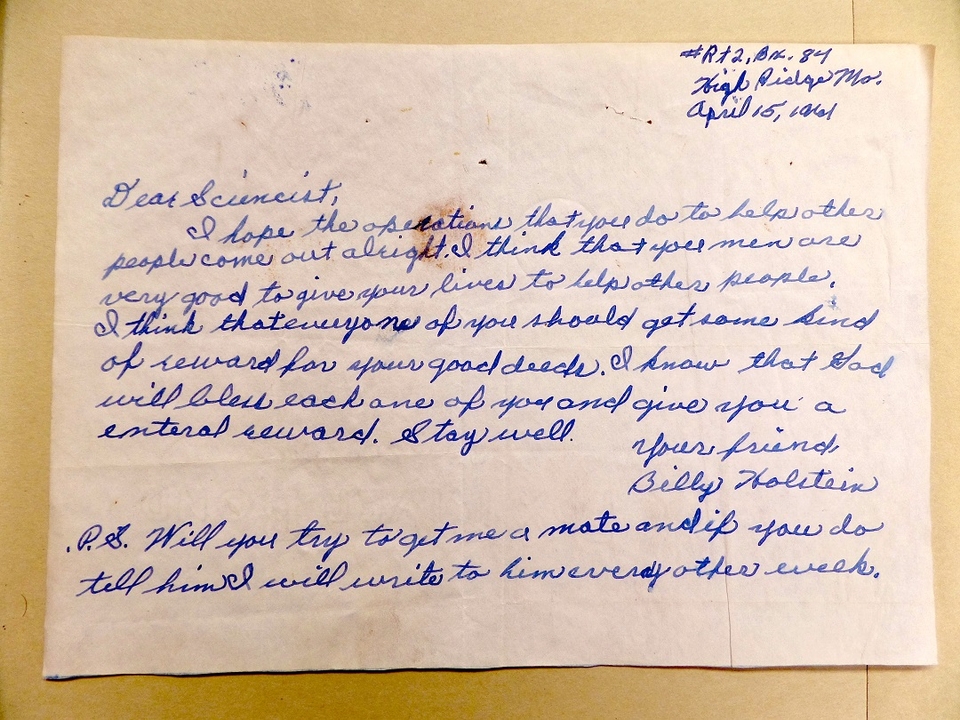 #Rt2, Bx. 84
High Ridge Mo.
April 15, 1961
Dear Sciencist,
I hope the operations that you do to help other
people come out alright. I think that you men are
very good to give your lives to help other people.
I think that everyone of you should get some kind
of reward for your good deeds. I know that God
will bless each one of you and give you a
enteral reward. Stay well.
Your friend,
Billy Holstein
P.S. Will you try to get me a mate and if you do
tell him I will write to him every other week.